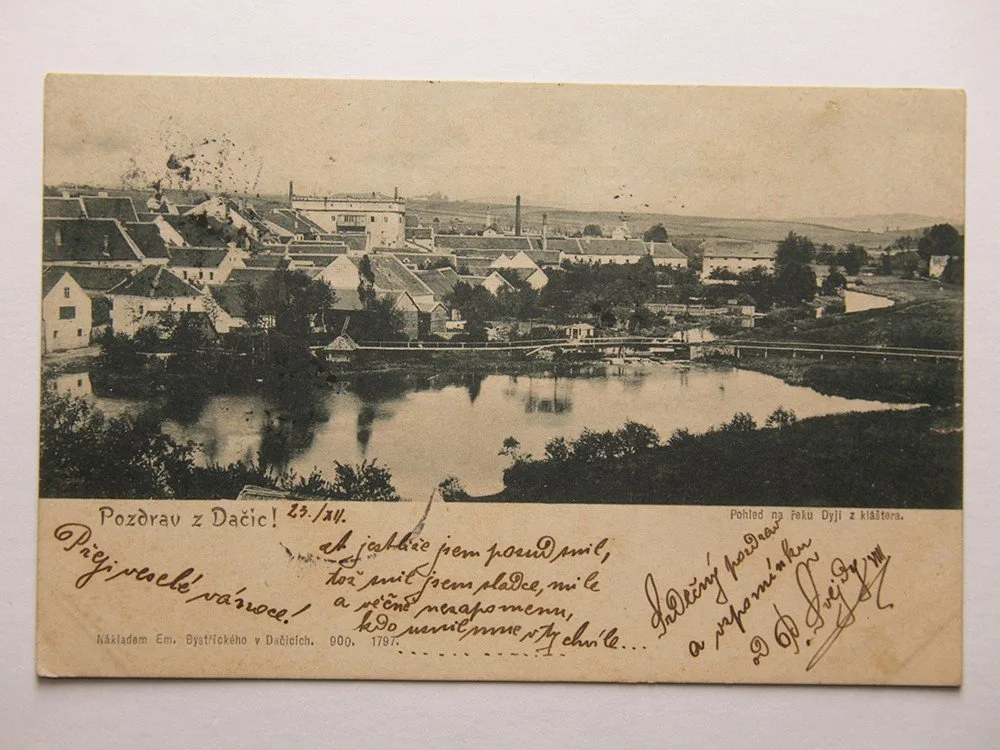 Pozdrav z Dačic!
23./XII.
Pohled na řeku Dyji z kláštera.
Přeji veselé vánoce!
ať jestliže jsem posud snil,
tož snil jsem sladce, mile
a věčně nezapomenu,
kdo usnil mne v ty chvíle...
Srdečný pozdrav
a vzpomínku
od
Nákladem Em. Bystřického v Dačicích. 900. 1797.